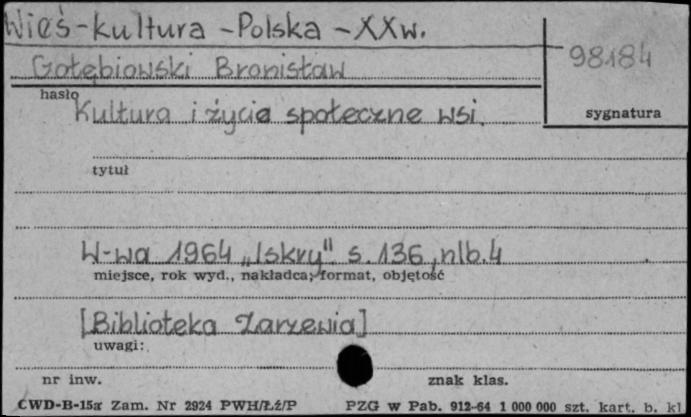 Wieś-kultura -Polska -XXw.
Gołębiowski Bronisław
98184
hasło
Kultura i życie społeczne wsi.
sygnatura
tytuł
W-wa 1964 „Iskry" s. 136, nlb. 4
miejsce, rok wyd., nakładca, format, objętość
[Biblioteka Zarzewia]
uwagi:
nr inw.
znak klas.
CWD-B-15a Zam. Nr 2924 PWH/Łź/P PZG w Pab. 912-64 1 000 000 szt. kart. b. kl